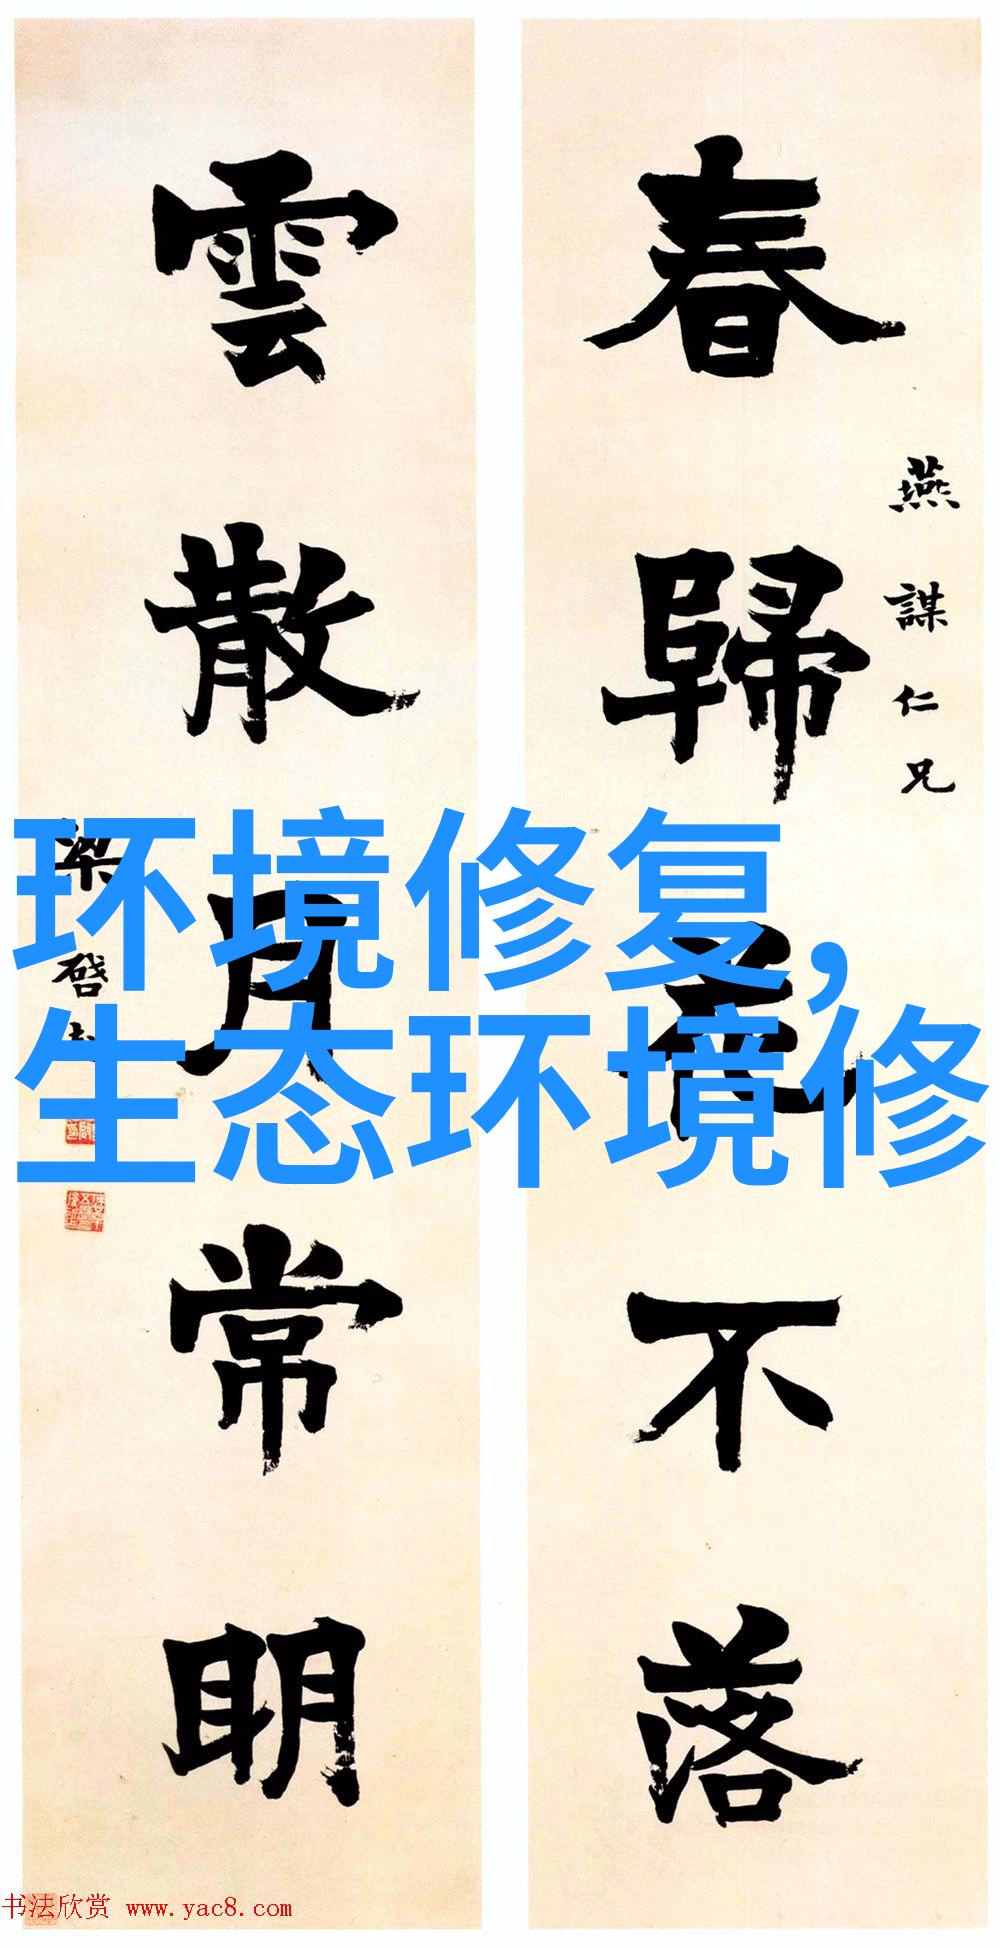 春歸花不落
燕謀仁兄
雲散月常明
梁啓超
环境修复,
生态环境修
书法欣赏 www.yac8.com